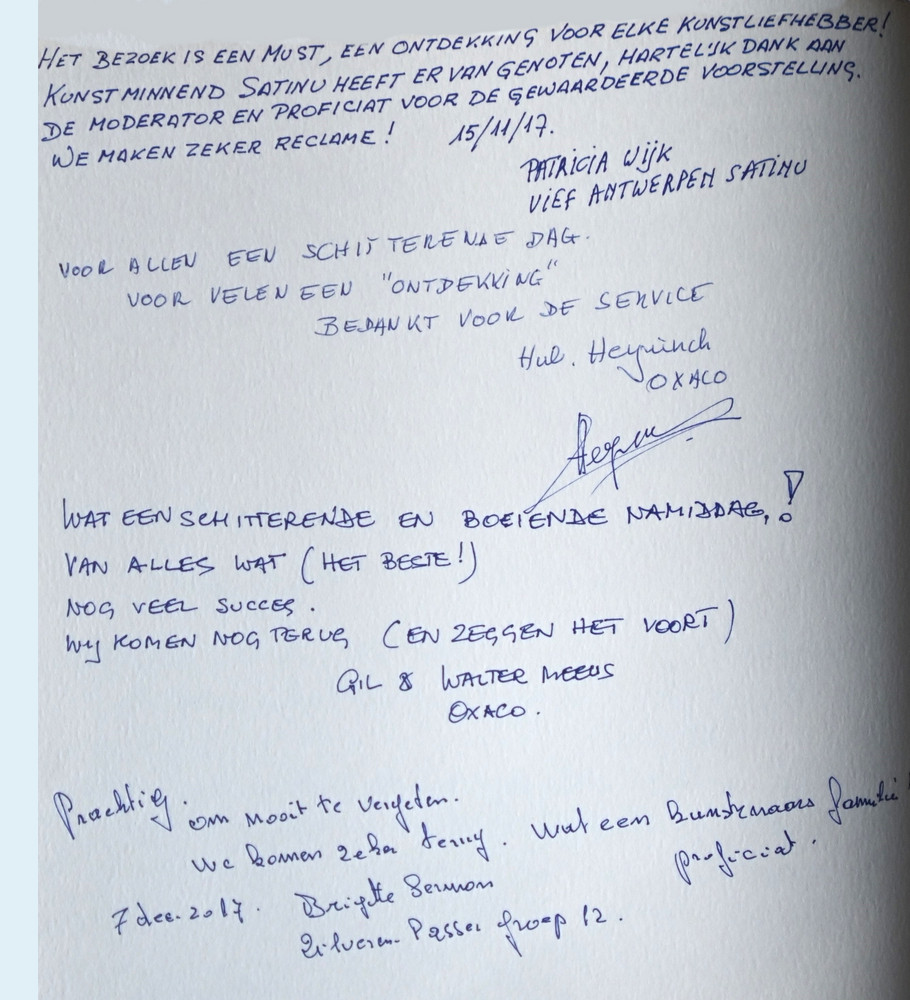 HET BEZOEK IS EEN MUST, EEN ONTDEKKING VOOR ELKE KUNSTLIEFHEBBER!
KUNSTMINNEND SATINU HEEFT ER VAN GENOTEN, HARTELIJK DANK AAN
DE MODERATOR EN PROFICIAT VOOR DE GEWAARDEERDE VOORSTELLING.
WE MAKEN ZEKER RECLAME! 15/11/17.
PATRICIA WIJK
VIEF ANTWERPEN SATINU
VOOR ALLEN EEN SCHITTERENDE DAG.
VOOR VELEN EEN "ONTDEKKING"
BEDANKT VOOR DE SERVICE
Hul.
OXACO
WAT EEN SCHITTERENDE EN BOEIENDE NAMIDDAG,!
VAN ALLES WAT (HET BESTE!)
NOG VEEL SUCCES.
WIJ KOMEN NOG TERUG (EN ZEGGEN HET VOORT)
GIL & WALTER MEEUS
OXACO.
Prachtig. om nooit te vergeten.
We komen zeker terug. Wat een kunstenaars familie!
proficiat.
7 dec. 2017. Brigitte Sermon
Zilveren Passer groep 12.